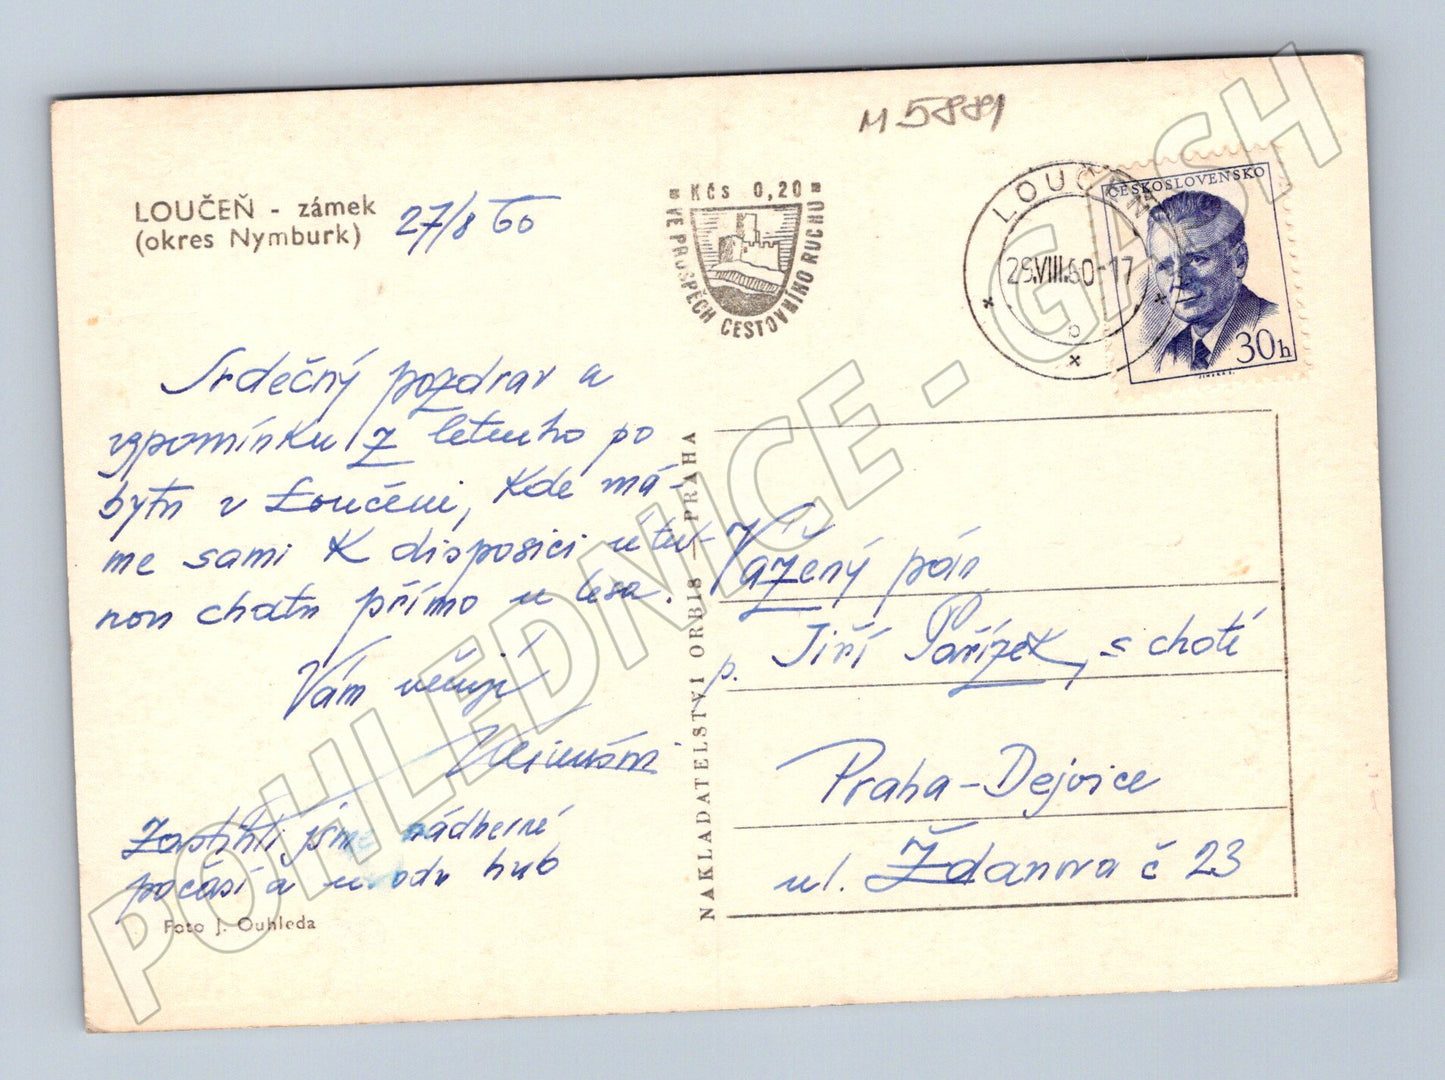 M 5881
LOUČEŇ - zámek
(okres Nymburk)
27/8 60
Kčs 0,20
VE PROSPĚCH CESTOVNÍHO RUCHU
LOUČEŇ
29.VIII.60-17
b
ČESKOSLOVENSKO
30h
Srdečný pozdrav a
vzpomínku z letního po
bytu v Loučeni, kde má-
me sami k disposici útul-
nou chatu přímo u lesa.
Vám věrný
Zastihli jsme nádherné
počasí a hub
Foto J. Ouhleda
NAKLADATELSTVÍ ORBIS - PRAHA
Vážený pán
p. Jiří Pařízek, s chotí
Praha-Dejvice
ul. Ždanova č 23
POHLEDNICE - GASH